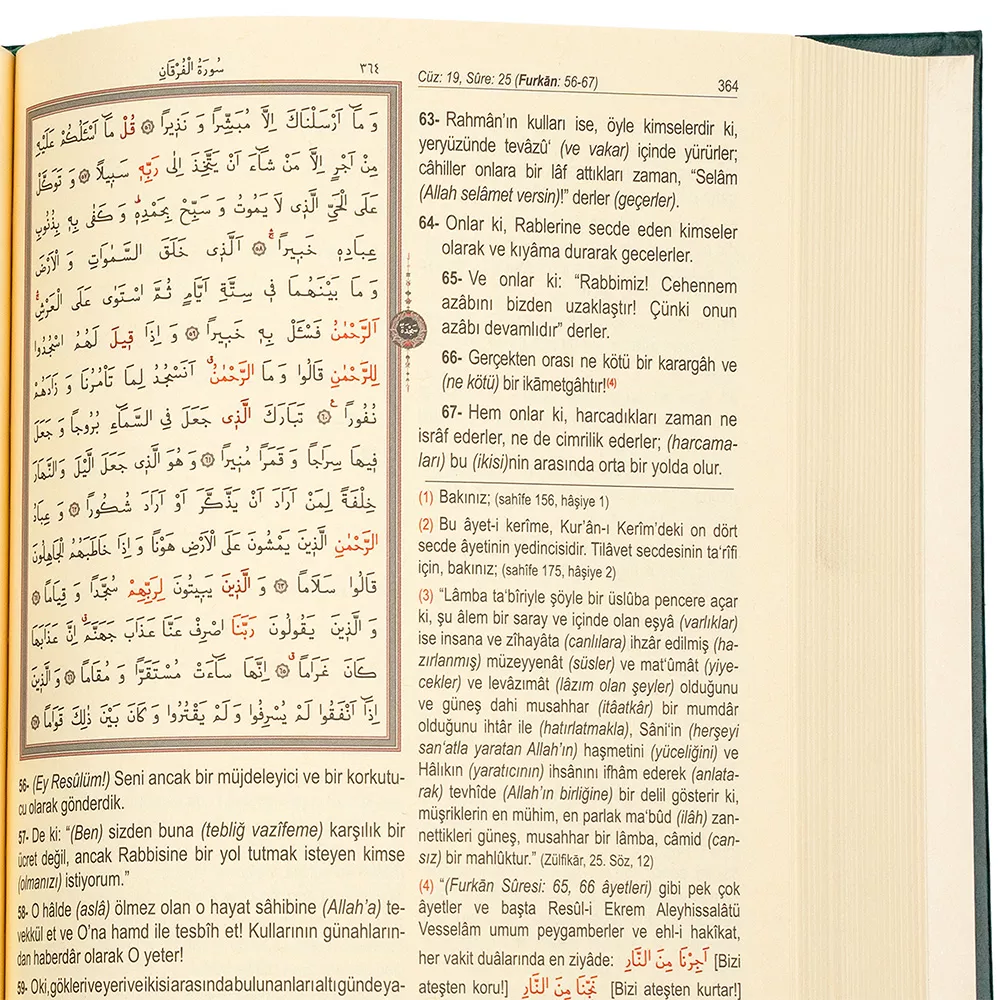 سُورَةُ الْفُرْقَانِ
٣٦٤
وَ مَٓا اَرْسَلْنَاكَ اِلَّا مُبَشِّرًا وَ نَذٖيرًا ﴿٥٦﴾ قُلْ مَٓا اَسْئَلُكُمْ عَلَيْهِ
مِنْ اَجْرٍ اِلَّا مَنْ شَٓاءَ اَنْ يَتَّخِذَ اِلٰى رَبِّهٖ سَبٖيلًا ﴿٥٧﴾ وَ تَوَكَّلْ
عَلَى الْحَيِّ الَّذٖى لَا يَمُوتُ وَ سَبِّحْ بِحَمْدِهٖ وَ كَفٰى بِهٖ بِذُنُوبِ
عِبَادِهٖ خَبٖيرًا ﴿٥٨﴾ اَلَّذٖى خَلَقَ السَّمٰوَاتِ وَ الْاَرْضَ
وَ مَا بَيْنَهُمَا فٖى سِتَّةِ اَيَّامٍ ثُمَّ اسْتَوٰى عَلَى الْعَرْشِ
اَلرَّحْمٰنُ فَسْئَلْ بِهٖ خَبٖيرًا ﴿٥٩﴾ وَ اِذَا قٖيلَ لَهُمُ اسْجُدُوا
لِلرَّحْمٰنِ قَالُوا وَ مَا الرَّحْمٰنُ اَنَسْجُدُ لِمَا تَأْمُرُنَا وَ زَادَهُمْ
نُفُورًا ﴿٦٠﴾ تَبَارَكَ الَّذٖى جَعَلَ فِى السَّمَٓاءِ بُرُوجًا وَ جَعَلَ
فٖيهَا سِرَاجًا وَ قَمَرًا مُنٖيرًا ﴿٦١﴾ وَ هُوَ الَّذٖى جَعَلَ الَّيْلَ وَ النَّهَارَ
خِلْفَةً لِمَنْ اَرَادَ اَنْ يَذَّكَّرَ اَوْ اَرَادَ شُكُورًا ﴿٦٢﴾ وَ عِبَادُ
الرَّحْمٰنِ الَّذٖينَ يَمْشُونَ عَلَى الْاَرْضِ هَوْنًا وَ اِذَا خَاطَبَهُمُ الْجَاهِلُونَ
قَالُوا سَلَامًا ﴿٦٣﴾ وَ الَّذٖينَ يَبٖيتُونَ لِرَبِّهِمْ سُجَّدًا وَ قِيَامًا ﴿٦٤﴾
وَ الَّذٖينَ يَقُولُونَ رَبَّنَا اصْرِفْ عَنَّا عَذَابَ جَهَنَّمَ اِنَّ عَذَابَهَا
كَانَ غَرَامًا ﴿٦٥﴾ اِنَّهَا سَٓاءَتْ مُسْتَقَرًّا وَ مُقَامًا ﴿٦٦﴾ وَ الَّذٖينَ
اِذَٓا اَنْفَقُوا لَمْ يُسْرِفُوا وَ لَمْ يَقْتُرُوا وَ كَانَ بَيْنَ ذٰلِكَ قَوَامًا ﴿٦٧﴾
سَجْدَة
56- (Ey Resûlüm!) Seni ancak bir müjdeleyici ve bir korkutu-
cu olarak gönderdik.
57- De ki: “(Ben) sizden buna (tebliğ vazîfeme) karşılık bir
ücret değil, ancak Rabbisine bir yol tutmak isteyen kimse
(olmanızı) istiyorum.”
58- O hâlde (aslâ) ölmez olan o hayat sâhibine (Allah’a) te-
vekkül et ve O’na hamd ile tesbîh et! Kullarının günahların-
dan haberdâr olarak O yeter!
59- O ki, gökleri ve yeri ve ikisi arasında bulunanları altı günde ya-
Cüz: 19, Sûre: 25 (Furkān: 56-67)
364
63- Rahmân’ın kulları ise, öyle kimselerdir ki,
yeryüzünde tevâzu‘ (ve vakar) içinde yürürler;
câhiller onlara bir lâf attıkları zaman, “Selâm
(Allah selâmet versin)!” derler (geçerler).
64- Onlar ki, Rablerine secde eden kimseler
olarak ve kıyâma durarak gecelerler.
65- Ve onlar ki: “Rabbimiz! Cehennem
azâbını bizden uzaklaştır! Çünki onun
azâbı devamlıdır” derler.
66- Gerçekten orası ne kötü bir karargâh ve
(ne kötü) bir ikāmetgâhtır!(4)
67- Hem onlar ki, harcadıkları zaman ne
isrâf ederler, ne de cimrilik ederler; (harcama-
ları) bu (ikisi)nin arasında orta bir yolda olur.
(1) Bakınız; (sahîfe 156, hâşiye 1)
(2) Bu âyet-i kerîme, Kur’ân-ı Kerîm’deki on dört
secde âyetinin yedincisidir. Tilâvet secdesinin ta‘rîfi
için, bakınız; (sahîfe 175, hâşiye 2)
(3) “Lâmba ta‘bîriyle şöyle bir üslûba pencere açar
ki, şu âlem bir saray ve içinde olan eşyâ (varlıklar)
ise insana ve zîhayâta (canlılara) ihzâr edilmiş (ha-
zırlanmış) müzeyyenât (süsler) ve mat‘ûmât (yiye-
cekler) ve levâzımât (lâzım olan şeyler) olduğunu
ve güneş dahi musahhar (itâatkâr) bir mumdâr
olduğunu ihtâr ile (hatırlatmakla), Sâni‘in (herşeyi
san‘atla yaratan Allah’ın) haşmetini (yüceliğini) ve
Hâlıkın (yaratıcının) ihsânını ifhâm ederek (anlata-
rak) tevhîde (Allah’ın birliğine) bir delil gösterir ki,
müşriklerin en mühim, en parlak ma‘bûd (ilâh) zan-
nettikleri güneş, musahhar bir lâmba, câmid (can-
sız) bir mahlûktur.” (Zülfikār, 25. Söz, 12)
(4) “(Furkān Sûresi: 65, 66 âyetleri) gibi pek çok
âyetler ve başta Resûl-i Ekrem Aleyhissalâtü
Vesselâm umum peygamberler ve ehl-i hakîkat,
her vakit duâlarında en ziyâde: اَجِرْنَا مِنَ النَّارِ [Bizi
ateşten koru!] نَجِّنَا مِنَ النَّارِ [Bizi ateşten kurtar!]